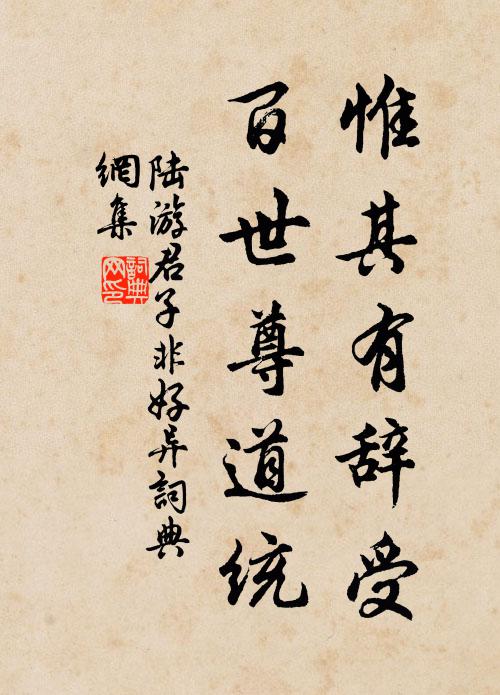 惟其有辞受
百世尊道统
陆游君子非好异詞典
網集
詞典网印